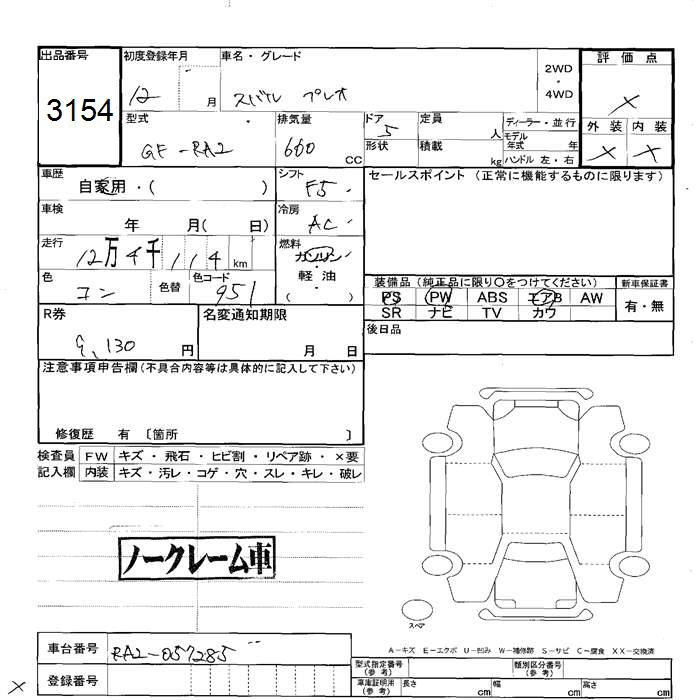 出品番号
3154
初度登録年月
12 月
車名・グレード
スバル プレオ
2WD
・
4WD
評価点
×
外装 内装
× ×
型式
GF-RA2
排気量
660 CC
ドア 5
形状
定員 人
積載 kg
ディーラー・並行
モデル年式 年
ハンドル 左・右
車歴
自家用・( )
シフト
F5
セールスポイント (正常に機能するものに限ります)
車検
年 月( 日)
冷房
AC
走行
12万4千114 km
燃料
ガソリン
軽・油
( )
色
コン
色替
色コード
951
装備品 (純正品に限り〇をつけてください)
新車保証書
PS PW ABS エアB AW
SR ナビ TV カワ
有・無
後日品
R券
9,130 円
名変通知期限
月 日
注意事項申告欄(不具合内容等は具体的に記入して下さい)
修復歴 有 〔箇所 〕
検査員
記入欄
FW キズ・飛石・ヒビ割・リペア跡・×要
内装 キズ・汚レ・コゲ・穴・スレ・キレ・破レ
ノークレーム車
スペア
A-キズ E-エクボ U-凹み W-補修跡 S-サビ C-腐食 XX-交換済
車台番号
RA2-057285
登録番号
×
型式指定番号
(参考)
類別区分番号
(参考)
車庫証明用
(参考)
長さ cm 幅 cm 高さ cm